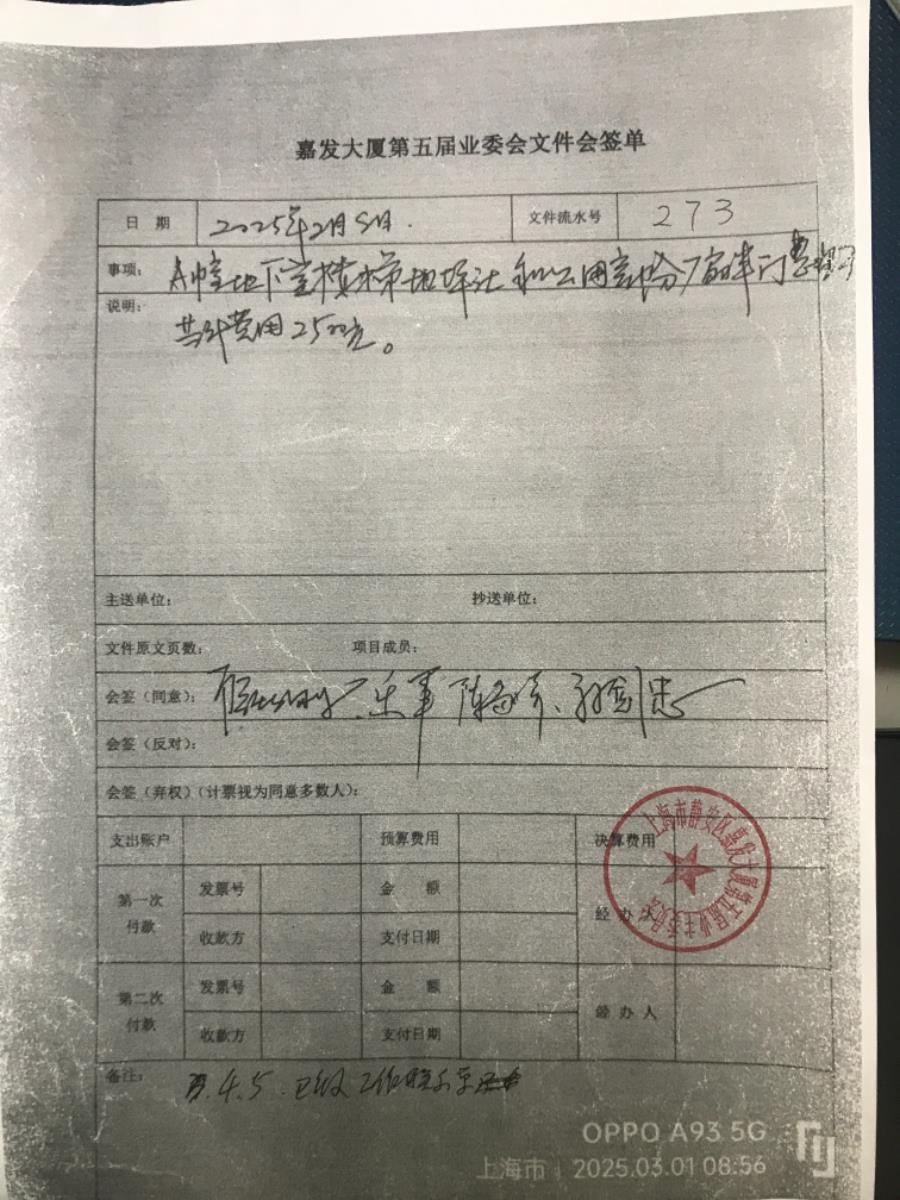 嘉发大厦第五届业委会文件会签单
日 期 2025年2月5日. 文件流水号 273
事项: A幢地下室 和公用部份
说明: 共计费用2500元。
主送单位: 抄送单位:
文件原文页数: 项目成员:
会签（同意）:
会签（反对）:
会签（弃权）（计票视为同意多数人）:
支出账户 预算费用 决算费用
第一次付款 发票号 金 额 经 办 人
收款方 支付日期
第二次付款 发票号 金 额 经 办 人
收款方 支付日期
备注: 4.5.
上海市静安区嘉发大厦第五届业主委员会
OPPO A93 5G
上海市 2025.03.01 08:56